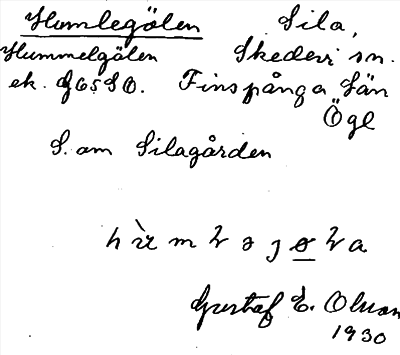 Humlegölen Sila,
Hummelgölen Skedevi sn.
ek. Finspånga län
Ögl
S. om Silagården
Gustaf E. Olsson
1930